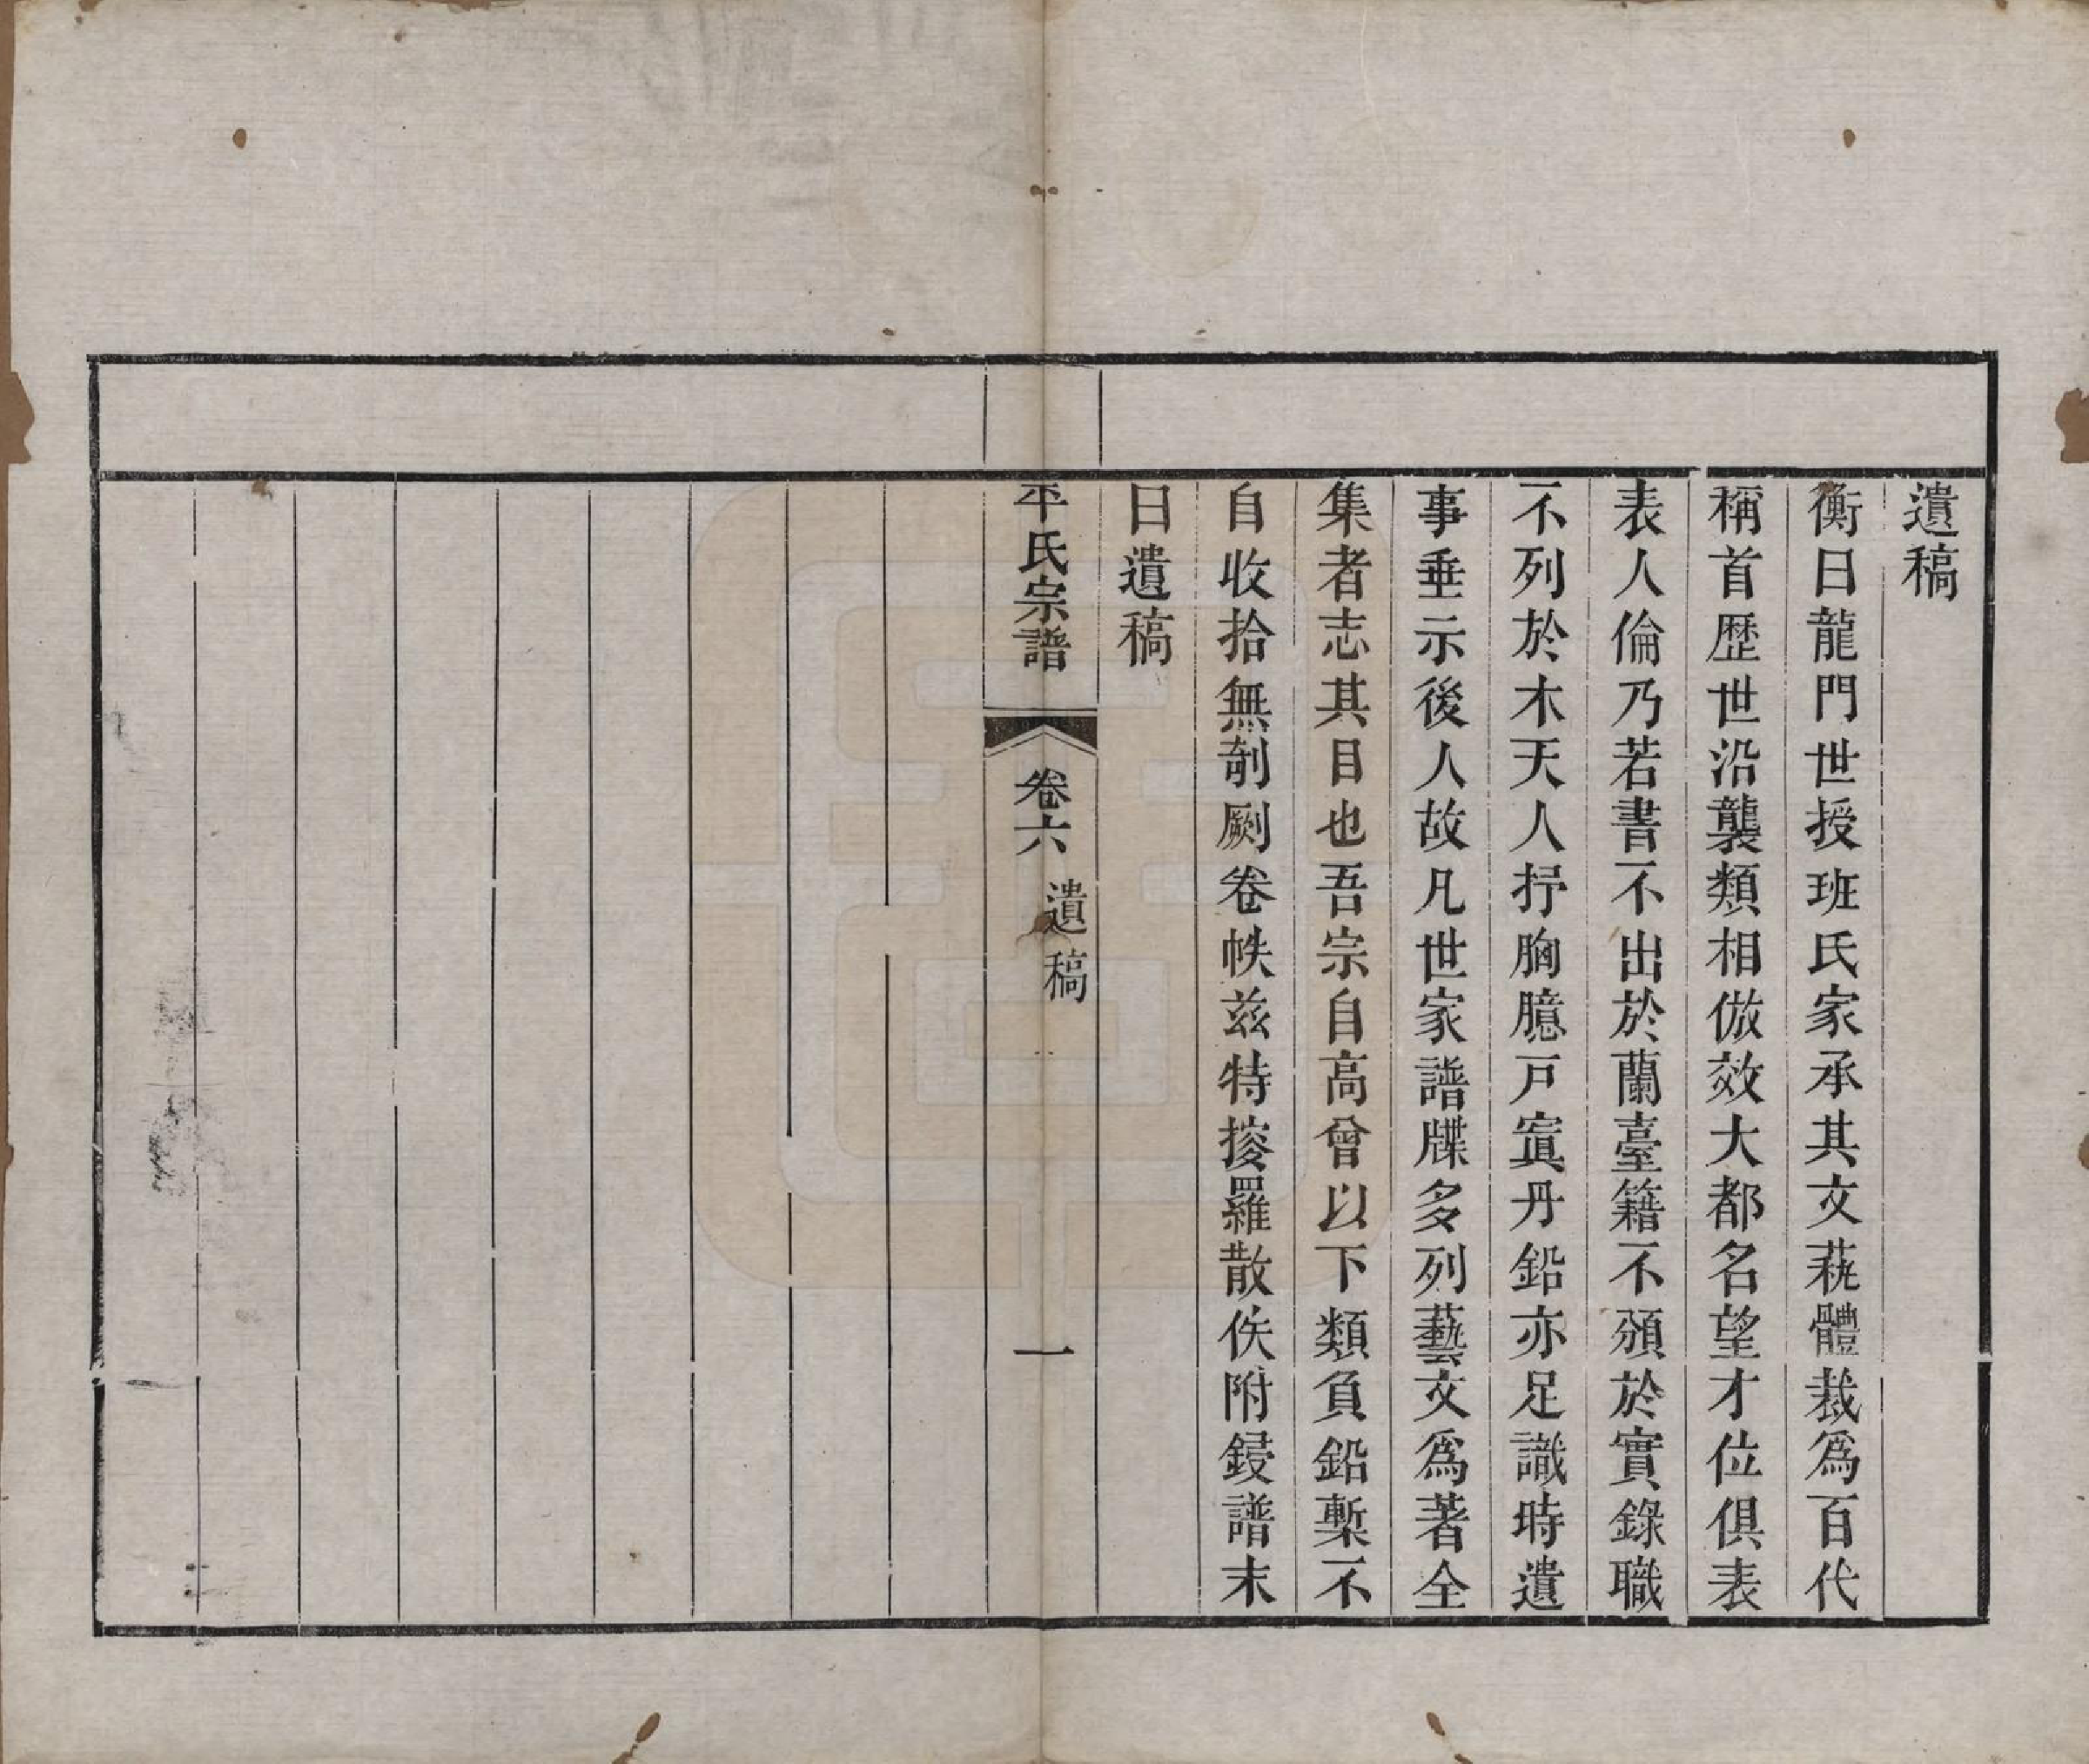 遺稿
衡曰龍門世授班氏家承其文蓺體裁爲百代
稱首歷世沿襲類相倣效大都名望才位俱表
表人倫乃若書不出於蘭臺籍不頒於實錄職
不列於木天人抒胸臆戸寘丹鉛亦足識時遺
事垂示後人故凡世家譜牒多列藝文爲著全
集者志其目也吾宗自高曾以下類負鉛槧不
自收拾無剞劂卷帙兹特搜羅散佚附鋟譜末
曰遺稿
平氏宗譜
卷六
遺稿
一